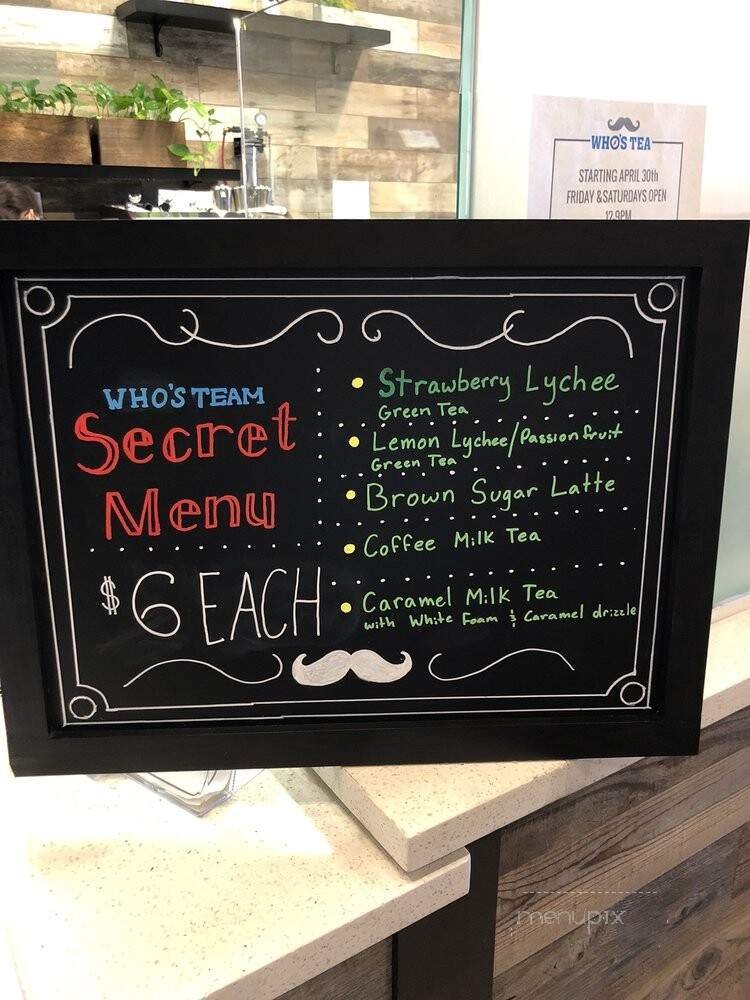 WHO'S TEA
STARTING APRIL 30th
FRIDAY & SATURDAYS OPEN
12-9PM
WHO'S TEAM
Secret
Menu
$6 EACH
Strawberry Lychee
Green Tea
Lemon Lychee/Passionfruit
Green Tea
Brown Sugar Latte
Coffee Milk Tea
Caramel Milk Tea
with White Foam & Caramel drizzle
menupix